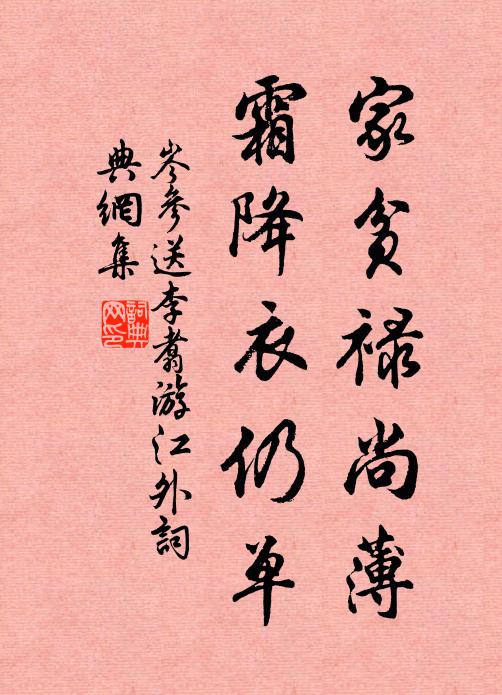 家贫禄尚薄
霜降衣仍单
岑参送李翥游江外詞
典網集
詞典
网印